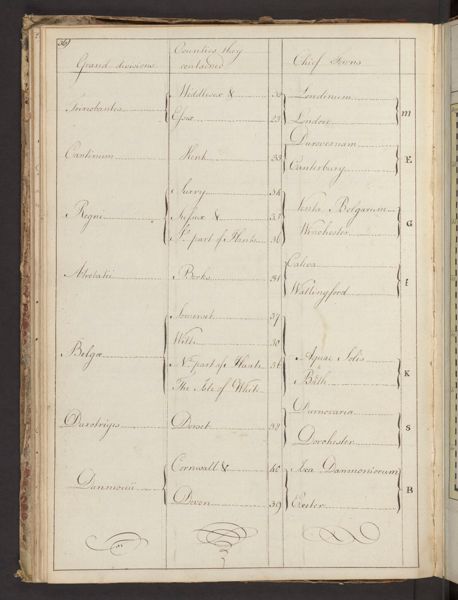 36
Grand divisions Counties they contained Chief Towns
Trinobantes Middlesex & Londinum M
Essex 23 London
Durovernum
Cantinum Kent 33 Canterbury E
Surry 34
Regni Sussex & 35 Venta Belgarum G
S. part of Hants 36 Winchester
Caliva
Atrebatii Berks 31 Wallingford I
Somerset 37
Wilts 30
Belgæ N. part of Hants 36 Aquæ Solis K
The Isle of White Bath
Durnovaria
Durotriges Dorset 32 Dorchester S
Cornwall & 40 Isca Danmoniorum
Danmonii Devon 39 Exeter B